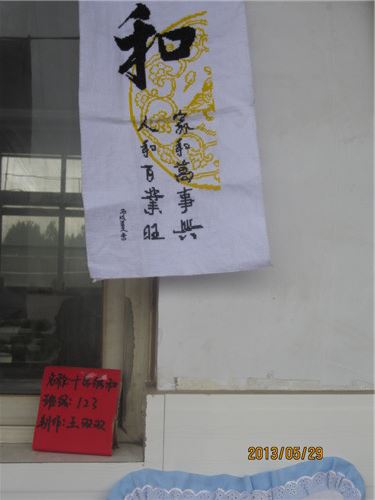 和
家和萬事興
人和百業旺
名称:十字绣和
班级:123
制作:王双双
2013/05/29